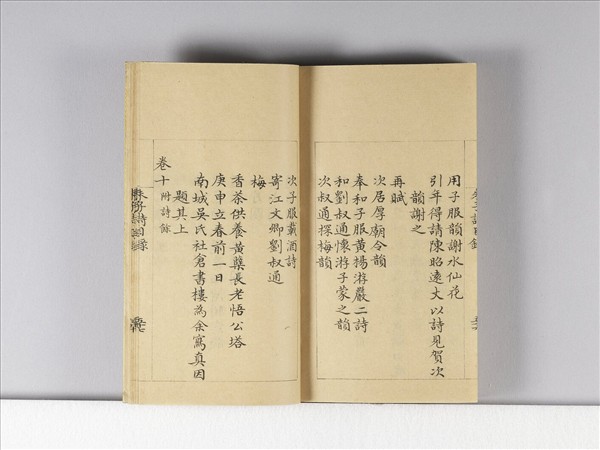 用子服韻謝水仙花
引年得請陳昭遠丈以詩見賀次
韻謝之
再賦
次居厚廟令韻
奉和子服黄楊游巖二詩
和劉叔通懷游子蒙之韻
次叔通探梅韻
次子服載酒詩
寄江文卿劉叔通
梅
香茶供養黄檗長老悟公塔
庚申立春前一日
南城吳氏社倉書樓為余寫真因
題其上
卷十 附詩餘